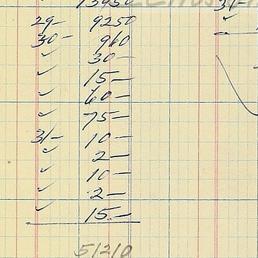 13950
29- 9250
30- 960
✓ 30-
✓ 15-
✓ 60-
✓ 75-
31- 10-
✓ 2-
✓ 10-
✓ 2-
✓ 15.-
51210
31-
✓